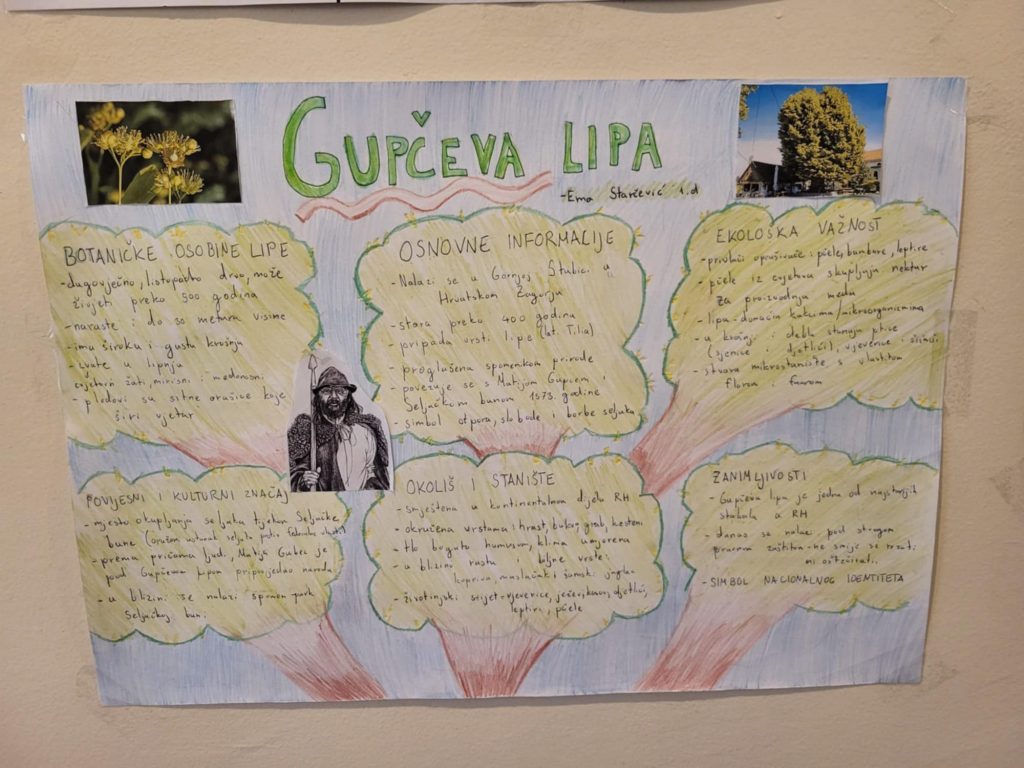 GUPČEVA LIPA
-Ema Starčević 1.d
BOTANIČKE OSOBINE LIPE
-dugovječno, listopadno drvo, može
živjet preko 500 godina
-naraste i do 30 metara visine
-ima široku i gustu krošnju
-cvate u lipnju
cvjetovi žuti, mirisni i medonosni
-plodovi su sitne orašice koje
širi vjetar
OSNOVNE INFORMACIJE
-Nalazi se u Gornjoj Stubici u
Hrvatskom Zagorju
-stara preko 400 godina
-pripada vrsti lipe (lat. Tilia)
-proglašena spomenikom prirode
-povezuje se s Matijom Gupcem i
Seljačkom bunom 1573. godine
-simbol otpora, slobode i borbe seljaka
EKOLOŠKA VAŽNOST
-privlači oprašivače: pčele, bumbare, leptire
-pčele iz cvjetova skupljaju nektar
za proizvodnju meda
-lipa-domaćin kukcima/mikroorganizmima
-u krošnji i deblu stanuju ptice
(sjenice djetlići), vjeverice i šišmiši
-stvara mikrostanište s vlastitom
florom i faunom
POVIJESNI I KULTURNI ZNAČAJ
-mjesto okupljanja seljaka tijekom Seljačke
bune (oružani ustanak seljaka protiv feudalne vlasti)
-prema pričama ljudi, Matija Gubec je
pod Gupčevom lipom pripovjedao narodu
-u blizini se nalazi spomen-park
Seljačkoj buni
OKOLIŠ I STANIŠTE
-smještena u kontinentalnom djelu RH
-okružena vrstama: hrast, bukva, grab, kesten
-tlo bogato humusom, klima umjerena
-u blizini rastu biljne vrste:
kopriva, maslačak i šumski jaglac
-životinjski svijet-vjeverice, ježevi, kosovi, djetlići,
leptiri, pčele
ZANIMLJIVOSTI
-Gupčeva lipa je jedna od najstarijih
stabala u RH
-danas se nalazi pod strogom
pravnom zaštitom-ne smije se rezati
ni oštećivati.
-SIMBOL NACIONALNOG IDENTITETA